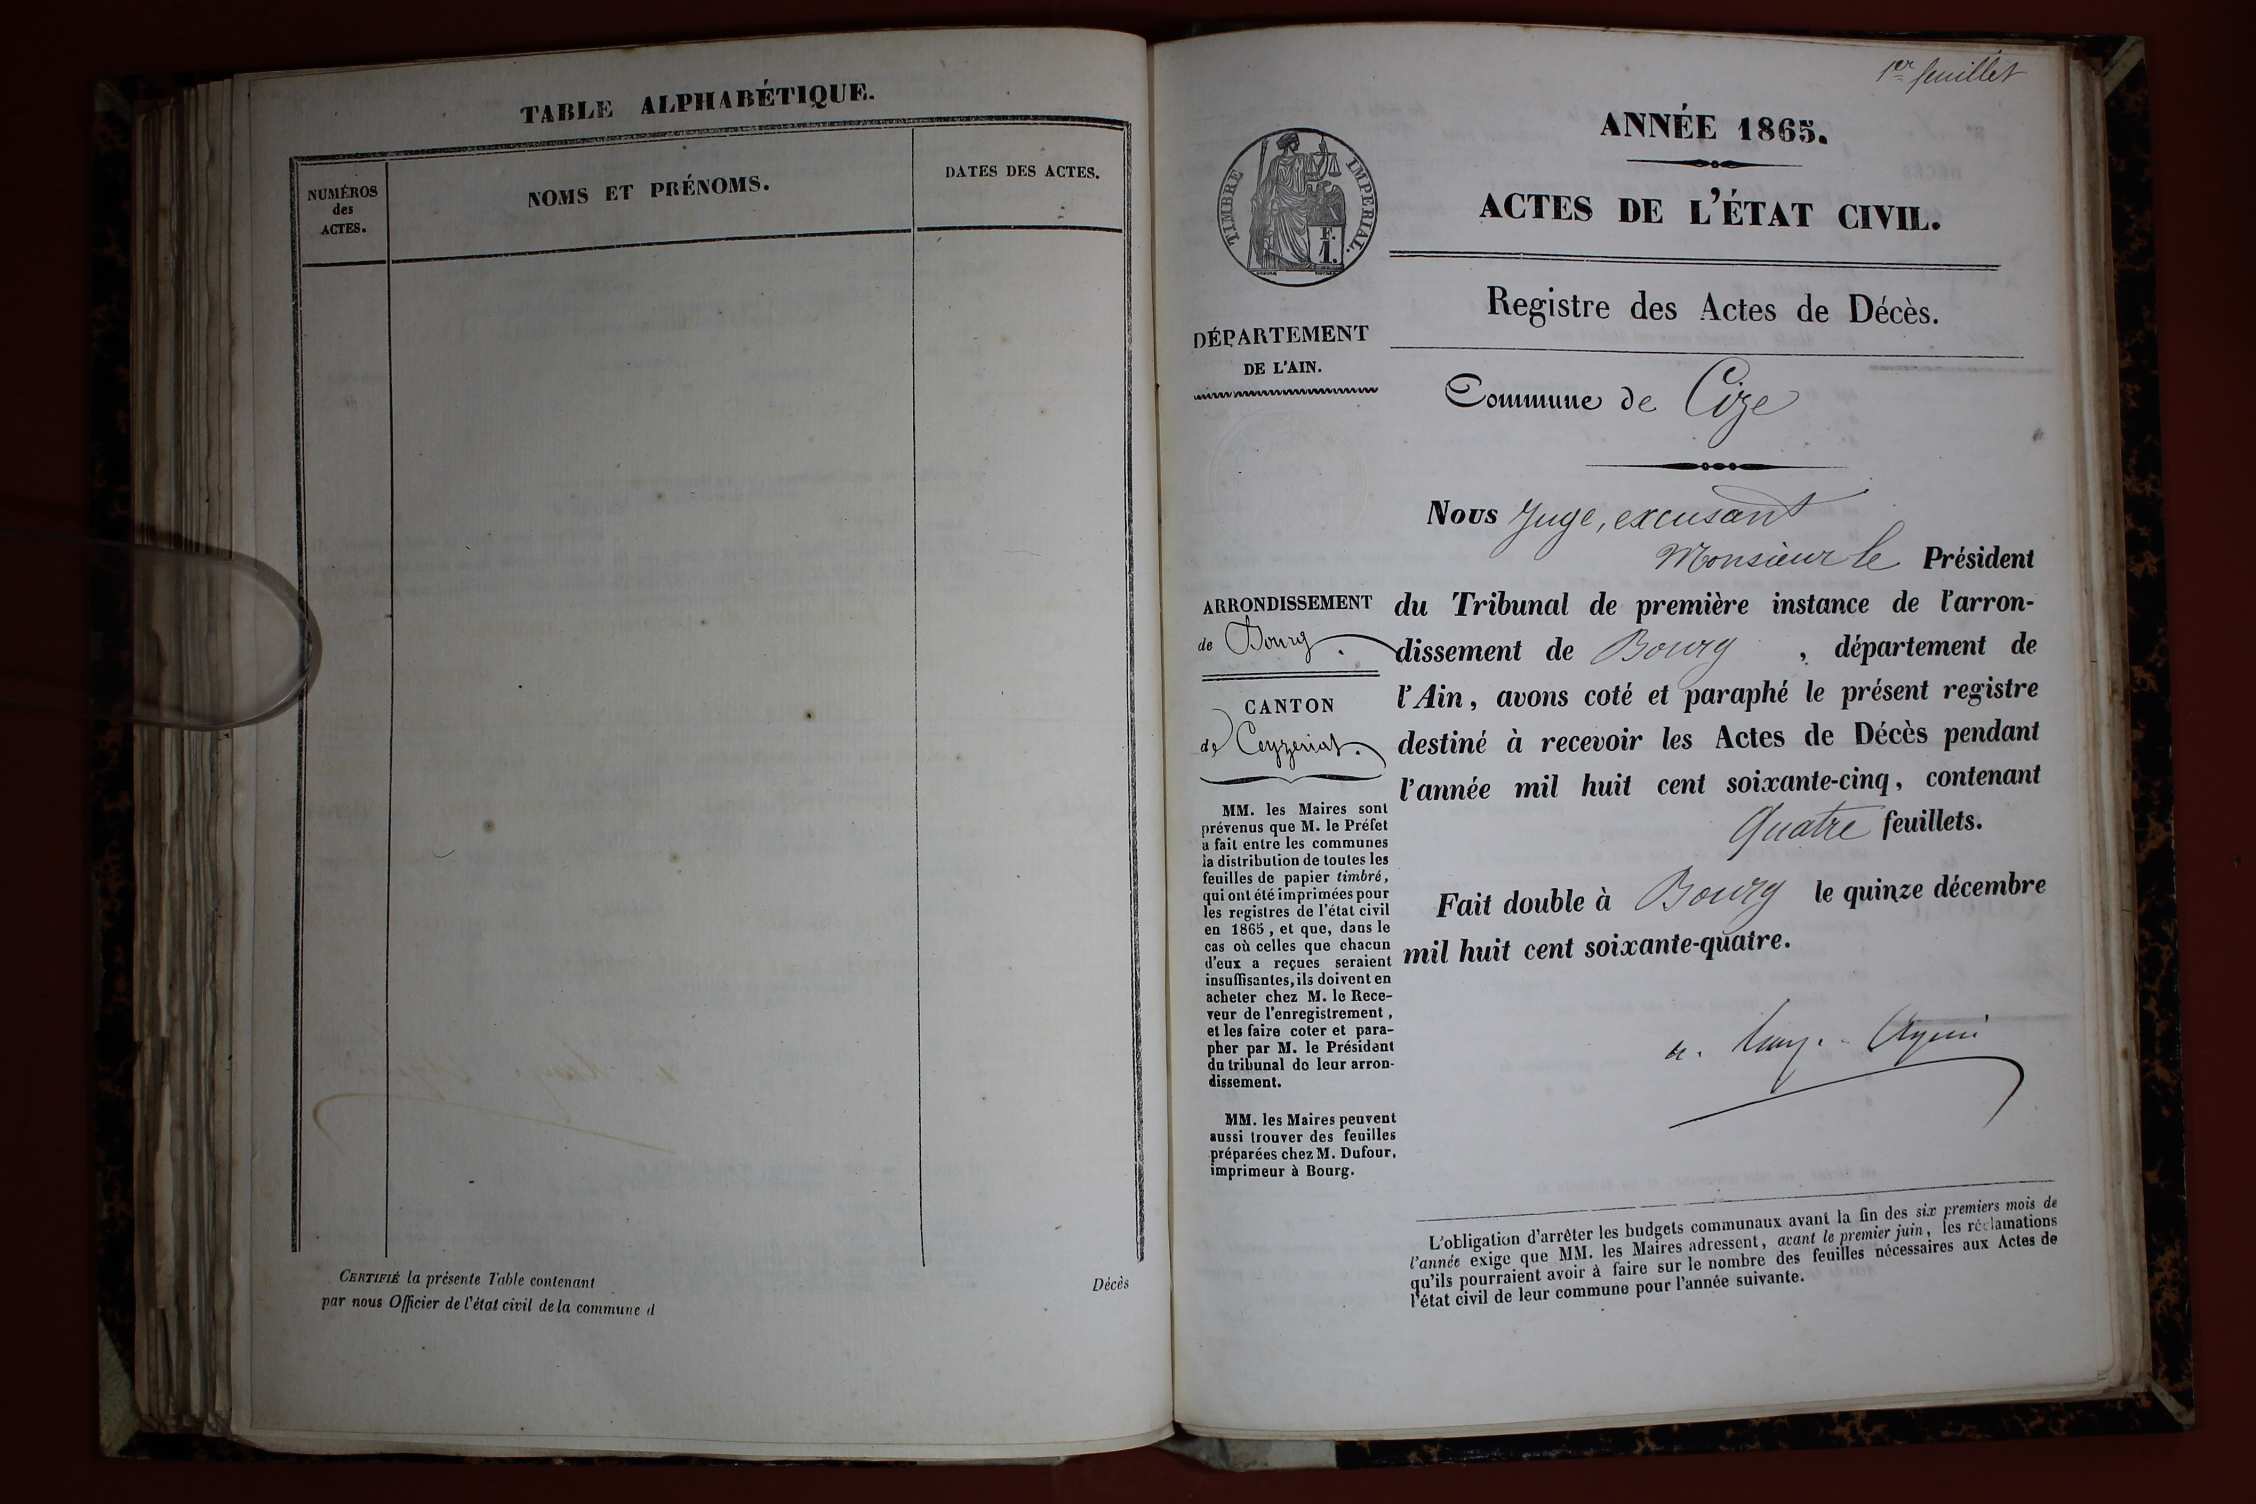 TABLE ALPHABÉTIQUE.
NUMÉROS
des
ACTES.
NOMS ET PRÉNOMS.
DATES DES ACTES.
CERTIFIÉ la présente Table contenant
par nous Officier de l'état civil de la commune d
Décès
1er feuillet
ANNÉE 1865.
ACTES DE L'ÉTAT CIVIL.
TIMBRE IMPERIAL.
F.
1.
Registre des Actes de Décès.
DÉPARTEMENT
DE L'AIN.
Commune de Cize
Nous Juge, excusant
Monsieur le Président
du Tribunal de première instance de l'arron-
dissement de Bourg , département de
l'Ain, avons coté et paraphé le présent registre
destiné à recevoir les Actes de Décès pendant
l'année mil huit cent soixante-cinq, contenant
Quatre feuillets.
Fait double à Bourg le quinze décembre
mil huit cent soixante-quatre.
ARRONDISSEMENT
de Bourg.
CANTON
de Ceyzeriat.
MM. les Maires sont
prévenus que M. le Préfet
a fait entre les communes
la distribution de toutes les
feuilles de papier timbré,
qui ont été imprimées pour
les registres de l'état civil
en 1865, et que, dans le
cas où celles que chacun
d'eux a reçues seraient
insuffisantes, ils doivent en
acheter chez M. le Rece-
veur de l'enregistrement,
et les faire coter et para-
pher par M. le Président
du tribunal de leur arron-
dissement.
MM. les Maires peuvent
aussi trouver des feuilles
préparées chez M. Dufour,
imprimeur à Bourg.
L'obligation d'arrêter les budgets communaux avant la fin des six premiers mois de
l'année exige que MM. les Maires adressent, avant le premier juin, les réclamations
qu'ils pourraient avoir à faire sur le nombre des feuilles nécessaires aux Actes de
l'état civil de leur commune pour l'année suivante.